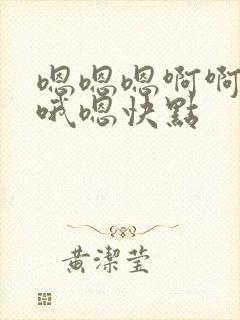 嗯嗯嗯啊啊
哦嗯快點
黃潔莹